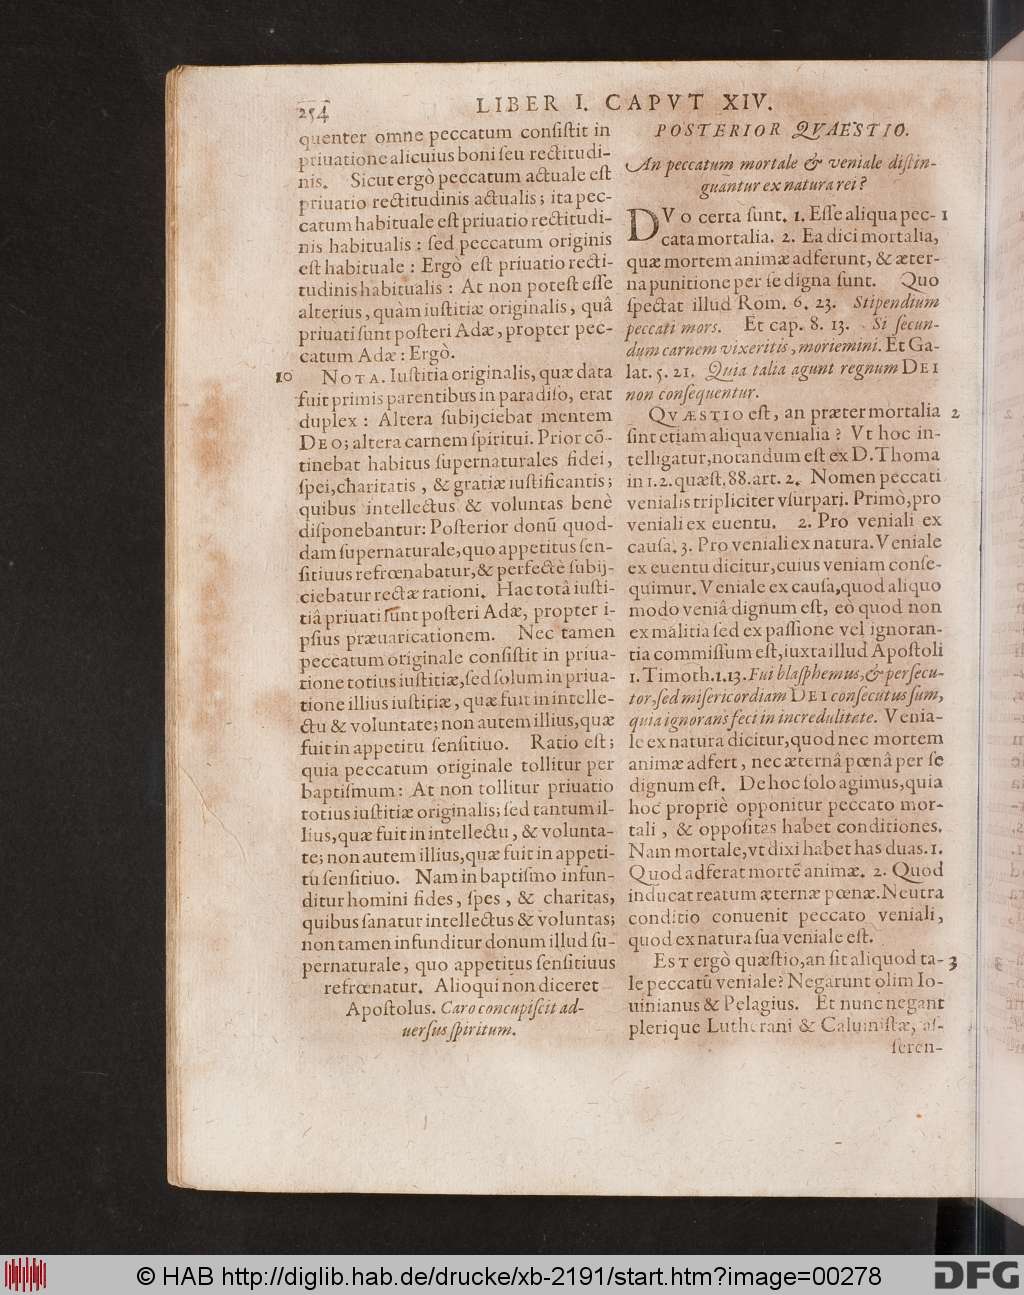 254
LIBER I. CAPVT XIV.
quenter omne peccatum conſiſtit in
priuatione alicuius boni ſeu rectitudi-
nis. Sicut ergò peccatum actuale eſt
priuatio rectitudinis actualis; ita pec-
catum habituale eſt priuatio rectitudi-
nis habitualis: ſed peccatum originis
eſt habituale: Ergò eſt priuatio recti-
tudinis habitualis: At non poteſt eſſe
alterius, quàm iuſtitiæ originalis, quâ
priuati ſunt poſteri Adæ, propter pec-
catum Adæ: Ergò.
10 NOTA. Iuſtitia originalis, quæ data
fuit primis parentibus in paradiſo, erat
duplex: Altera ſubijciebat mentem
DEO; altera carnem ſpiritui. Prior cõ-
tinebat habitus ſupernaturales fidei,
ſpei, charitatis, & gratiæ iuſtificantis;
quibus intellectus & voluntas benè
diſponebantur: Poſterior donũ quod-
dam ſupernaturale, quo appetitus ſen-
ſitiuus refrœnabatur, & perfectè ſubij-
ciebatur rectæ rationi. Hac totâ iuſti-
tiâ priuati ſunt poſteri Adæ, propter i-
pſius præuaricationem. Nec tamen
peccatum originale conſiſtit in priua-
tione totius iuſtitiæ, ſed ſolum in priua-
tione illius iuſtitiæ, quæ fuit in intelle-
ctu & voluntate; non autem illius, quæ
fuit in appetitu ſenſitiuo. Ratio eſt;
quia peccatum originale tollitur per
baptiſmum: At non tollitur priuatio
totius iuſtitiæ originalis; ſed tantum il-
lius, quæ fuit in intellectu, & volunta-
te; non autem illius, quæ fuit in appeti-
tu ſenſitiuo. Nam in baptiſmo infun-
ditur homini fides, ſpes, & charitas,
quibus ſanatur intellectus & voluntas;
non tamen infunditur donum illud ſu-
pernaturale, quo appetitus ſenſitiuus
refrœnatur. Alioqui non diceret
Apoſtolus. Caro concupiſcit ad-
uerſus ſpiritum.
POSTERIOR QVAESTIO.
An peccatum mortale & veniale diſtin-
guantur ex natura rei?
DVo certa ſunt. 1. Eſſe aliqua pec- 1
cata mortalia. 2. Ea dici mortalia,
quæ mortem animæ adferunt, & æter-
na punitione per ſe digna ſunt. Quo
ſpectat illud Rom. 6. 23. Stipendium
peccati mors. Et cap. 8. 13. Si ſecun-
dum carnem vixeritis, moriemini. Et Ga-
lat. 5. 21. Quia talia agunt regnum DEI
non conſequentur.
QVÆSTIO eſt, an præter mortalia 2
ſint etiam aliqua venialia? Vt hoc in-
telligatur, notandum eſt ex D. Thoma
in 1. 2. quæſt. 88. art. 2. Nomen peccati
venialis tripliciter vſurpari. Primò, pro
veniali ex euentu. 2. Pro veniali ex
cauſa. 3. Pro veniali ex natura. Veniale
ex euentu dicitur, cuius veniam conſe-
quimur. Veniale ex cauſa, quod aliquo
modo veniâ dignum eſt, eò quod non
ex malitia ſed ex paſſione vel ignoran-
tia commiſſum eſt, iuxta illud Apoſtoli
1. Timoth. 1. 13. Fui blaſphemus, & perſecu-
tor, ſed miſericordiam DEI conſecutus ſum,
quia ignorans feci in incredulitate. Venia-
le ex natura dicitur, quod nec mortem
animæ adfert, nec æternâ pœnâ per ſe
dignum eſt. De hoc ſolo agimus, quia
hoc propriè opponitur peccato mor-
tali, & oppoſitas habet conditiones.
Nam mortale, vt dixi habet has duas. 1.
Quod adferat mortẽ animæ. 2. Quod
inducat reatum æternæ pœnæ. Neutra
conditio conuenit peccato veniali,
quod ex natura ſua veniale eſt.
EST ergò quæſtio, an ſit aliquod ta- 3
le peccatũ veniale? Negarunt olim Io-
uinianus & Pelagius. Et nunc negant
plerique Lutherani & Caluiniſtæ, aſ-
ſeren-
© HAB http://diglib.hab.de/drucke/xb-2191/start.htm?image=00278
DFG